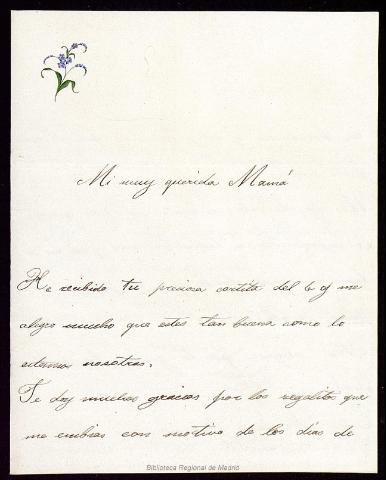 Mi muy querida Mamá
He recibido tu preciosa cartita del 6 y me
alegro mucho que estes tan buena como lo
estamos nosotras.
Te doy muchas gracias por los regalitos que
me embias con motivo de los dias de
Biblioteca Regional de Madrid